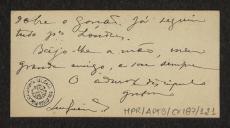 sobre o Garção. Já seguiu
tudo p.ª Londres.
Beijo-lhe a mão, meu
grande amigo, e sou sempre
O admor. discipulo
grato
HPR/APTB/CX187/121